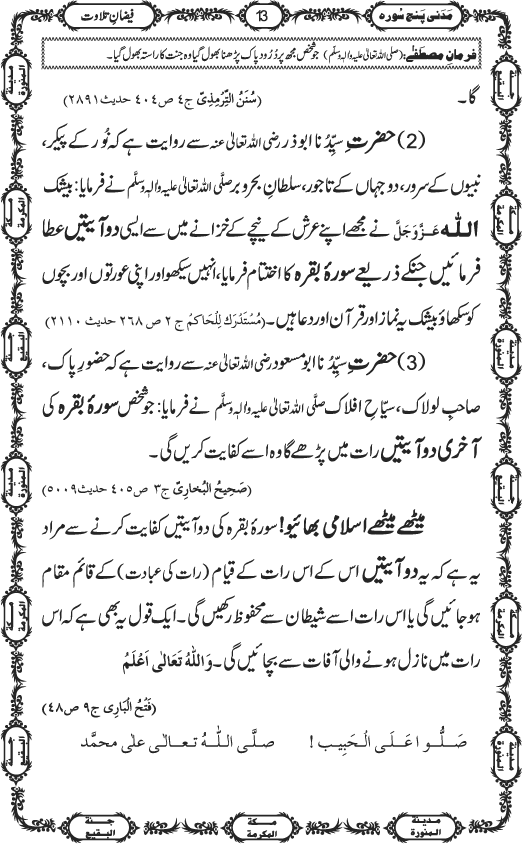 مَدَنی پَنج سُورہ 13 فیضانِ تلاوت
فرمانِ مصطَفٰے: (صلی اللہ تعالیٰ علیہ والہٖ وسلّم) جو شخص مجھ پر دُرُود پاک پڑھنا بھول گیا وہ جنت کا راستہ بھول گیا۔
گا۔ (سُنَنُ التِّرْمِذِیّ ج٤ ص ٤٠٤ حدیث ٢٨٩١)
(2) حضرتِ سیِّدُنا ابوذر رضی اللہ تعالیٰ عنہ سے روایت ہے کہ نُور کے پیکر،
نبیوں کے سرور، دو جہاں کے تاجور، سلطانِ بحر و بر صلَّی اللہ تعالیٰ علیہ واٰلہٖ وسلَّم نے فرمایا: بیشک
اللہ عَزَّوَجَلَّ نے مجھے اپنے عرش کے نیچے کے خزانے میں سے ایسی دو آیتیں عطا
فرمائیں جنکے ذریعے سورۂ بقرہ کا اختتام فرمایا، انہیں سیکھو اور اپنی عورتوں اور بچوں
کو سکھاؤ بیشک یہ نماز اور قرآن اور دعا ہیں۔ (مُسْتَدْرَك لِلْحَاكِمْ ج ٢ ص ٢٦٨ حدیث ٢١١٠)
(3) حضرتِ سیِّدُنا ابو مسعود رضی اللہ تعالیٰ عنہ سے روایت ہے کہ حضورِ پاک،
صاحبِ لولاک، سیّاحِ افلاک صلَّی اللہ تعالیٰ علیہ واٰلہٖ وسلَّم نے فرمایا: جو شخص سورۂ بقرہ کی
آخری دو آیتیں رات میں پڑھے گا وہ اسے کفایت کریں گی۔
(صَحِیحُ الْبُخارِیّ ج٣ ص ٤٠٥ حدیث ٥٠٠٩)
میٹھے میٹھے اسلامی بھائیو! سورۂ بقرہ کی دو آیتیں کفایت کرنے سے مراد
یہ ہے کہ یہ دو آیتیں اس کے اس رات کے قیام (رات کی عبادت) کے قائم مقام
ہو جائیں گی یا اس رات اسے شیطان سے محفوظ رکھیں گی۔ ایک قول یہ بھی ہے کہ اس
رات میں نازل ہونے والی آفات سے بچائیں گی۔ وَاللّٰہُ تَعَالٰی اَعْلَمُ
(فَتْحُ الْبَارِی ج٩ ص٤٨)
صَلُّوا عَلَی الْحَبِیب ! صلَّی اللّٰہُ تعالٰی علٰی محمَّد
مدینۃ المنورۃ جنۃ البقیع
مکۃ المکرمۃ مکۃ المکرمۃ
جنۃ البقیع مدینۃ المنورۃ
مدینۃ المنورۃ جنۃ البقیع
مکۃ المکرمۃ مکۃ المکرمۃ
جنۃ البقیع مدینۃ المنورۃ
مدینۃ المنورۃ مکۃ المکرمۃ جنۃ البقیع